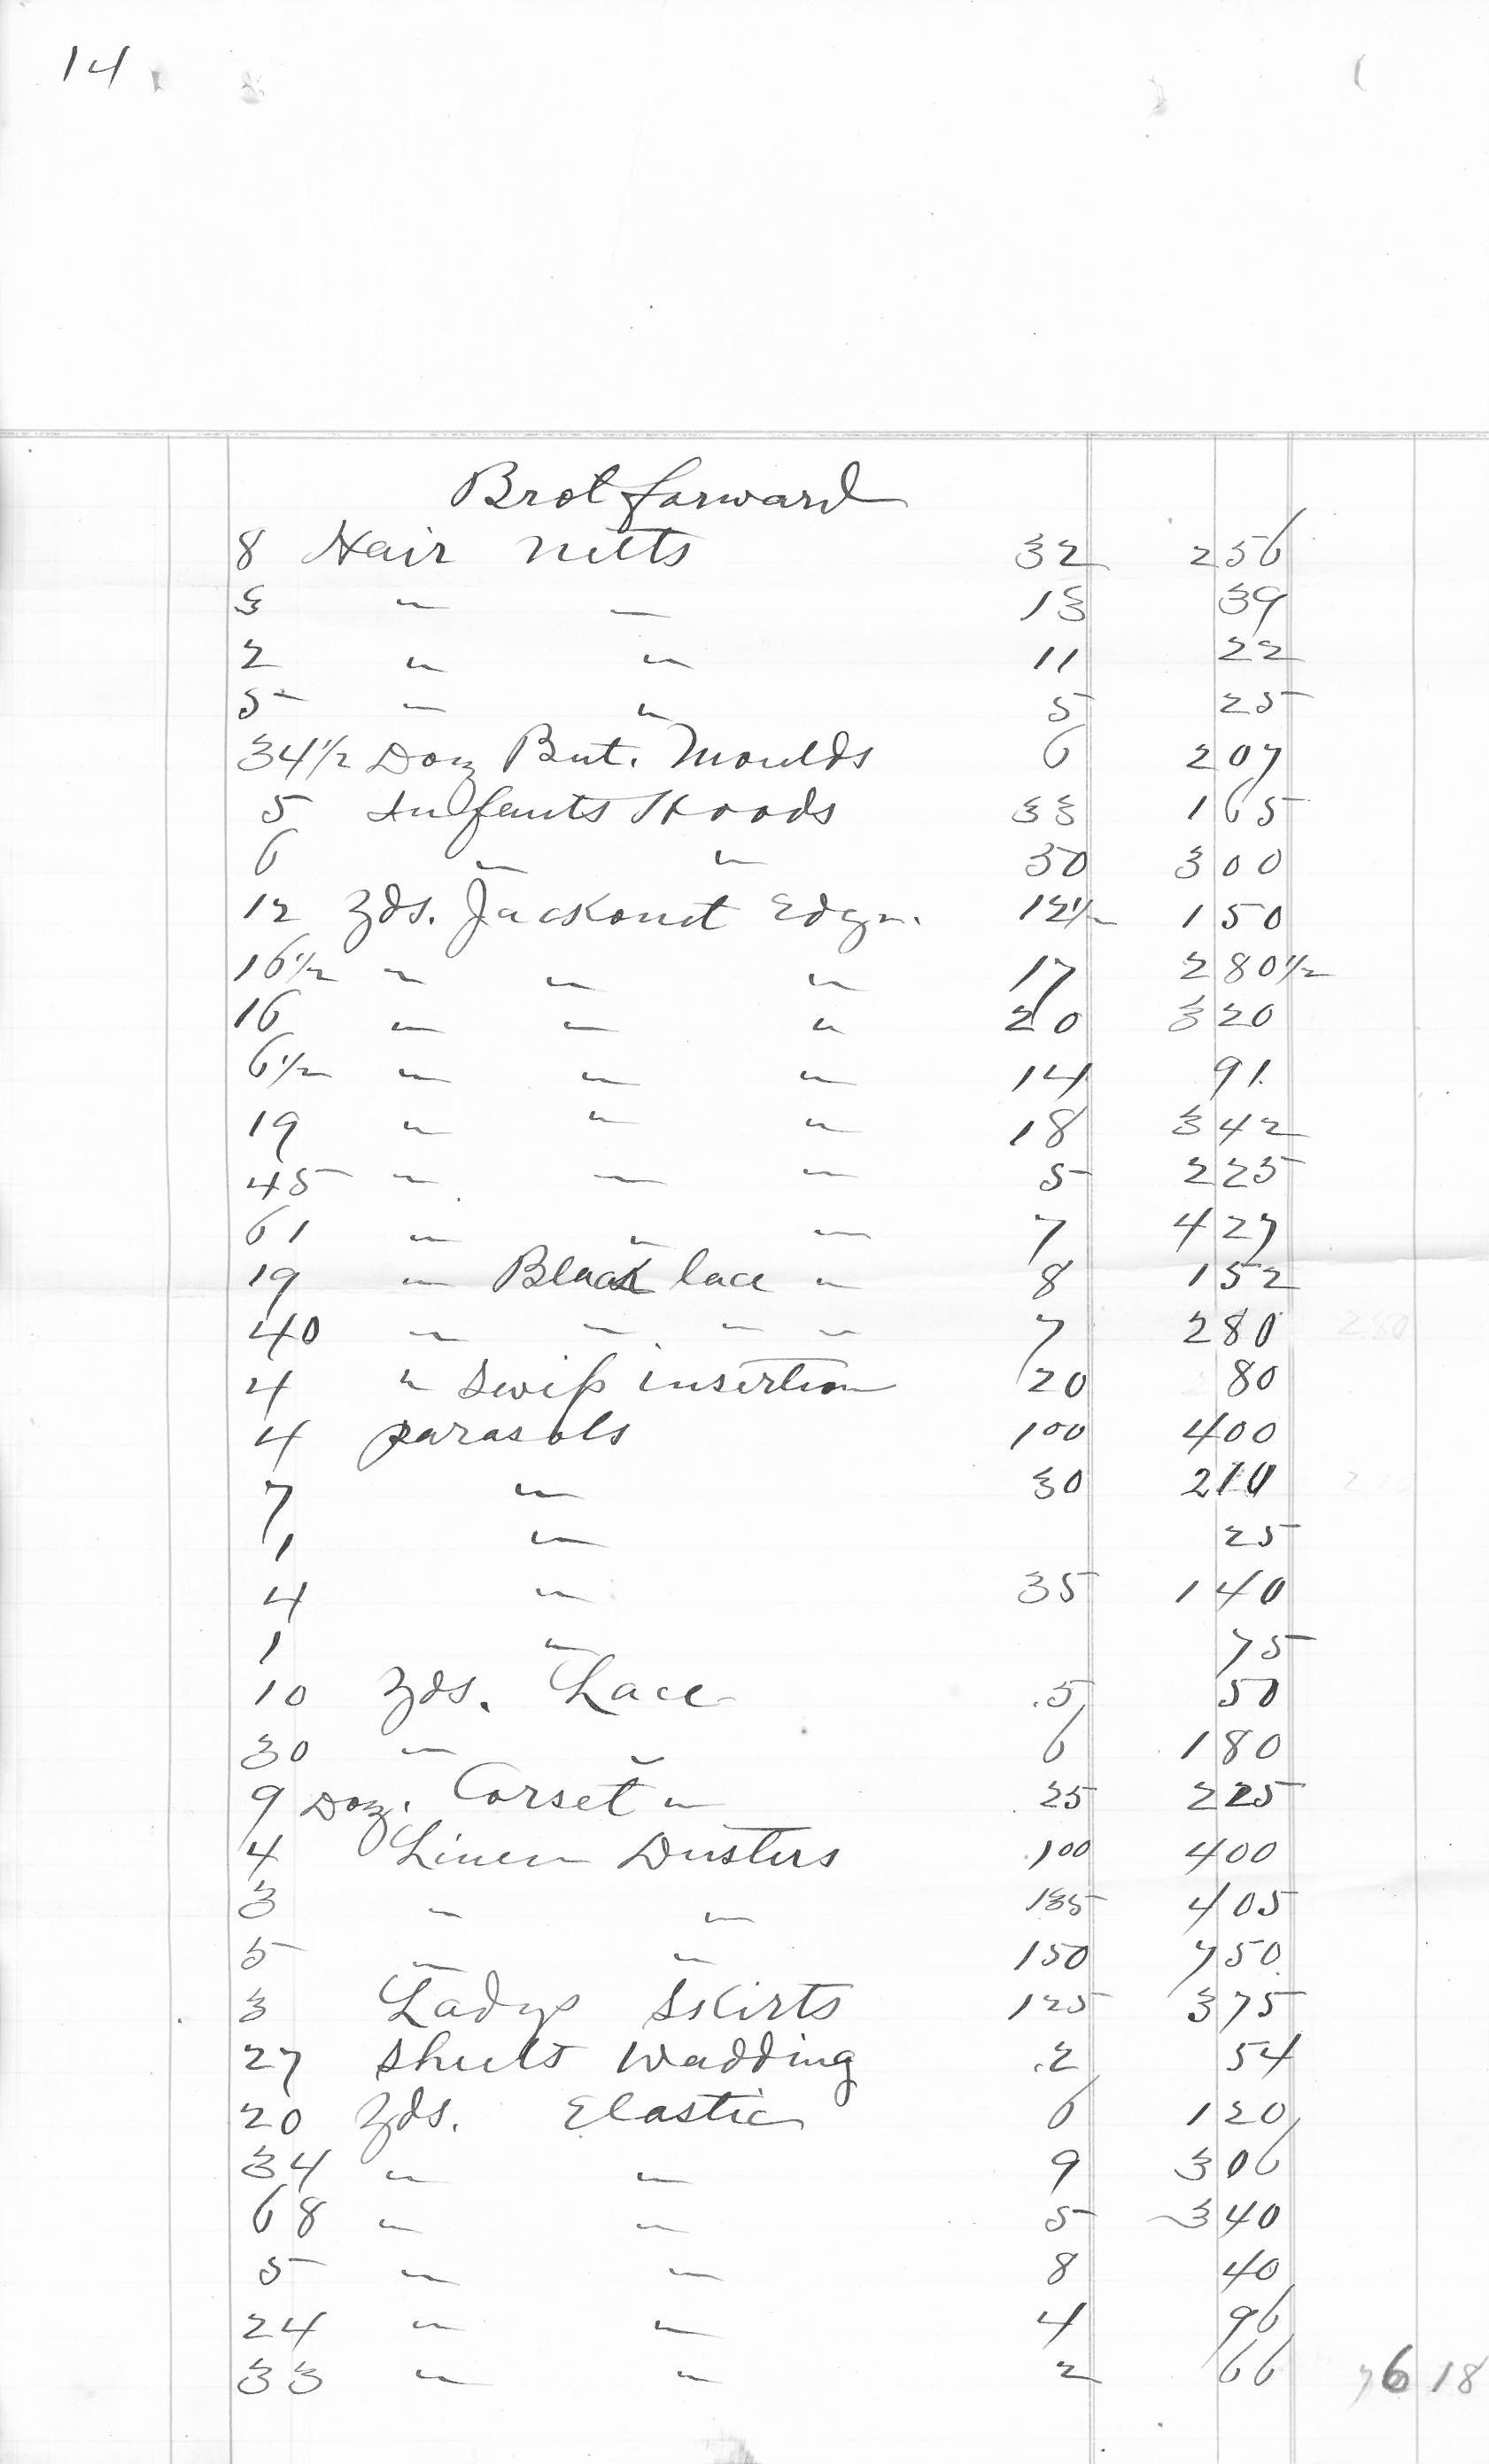 14
Brot forward
8 Hair netts 32 256
3 " " 13 39
2 " " 11 22
5 " " 5 25
34 1/2 Doz But. Moulds 6 207
5 Infants Hoods 33 165
6 " " 50 300
12 yds. Jackonet Edgn. 12 1/2 150
16 1/2 " " " 17 280 1/2
16 " " " 20 320
6 1/2 " " " 14 91
19 " " " 18 342
45 " " " 5 225
61 " " " 7 427
19 " Black lace " 8 152
40 " " " " 7 280
4 " Swiss insertion 20 80
4 parasols 100 400
7 " 30 210
1 " 25
4 " 35 140
1 " 75
10 yds. Lace 5 50
30 " " 6 180
9 Doz. Corset " 25 225
4 Linen Dusters 100 400
3 " " 135 405
5 " " 150 750
3 Ladys Skirts 125 375
27 Sheets Wadding 2 54
20 yds. Elastic 6 120
34 " " 9 306
68 " " 5 340
5 " " 8 40
24 " " 4 96
33 " " 2 66 76 18